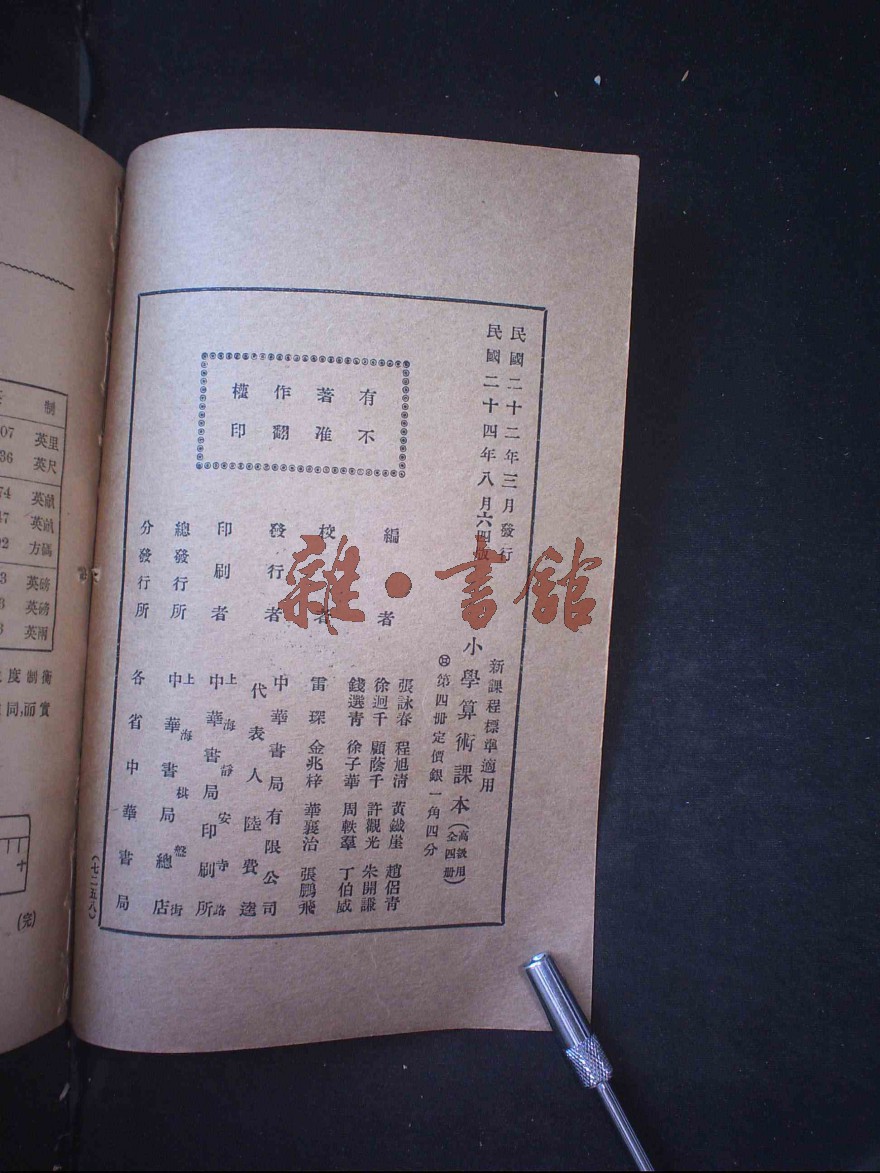 民國二十二年三月發行
民國二十四年八月六四版
新課程標準適用
小學算術課本(高級用 全四冊)
第四冊定價銀一角四分
有著作權
不准翻印
編者
張詠春 程旭清 黃鐵崖 趙侶青
徐迥千 顧蔭千 許觀光 朱開謙
錢選青 徐子華 周軼羣 丁伯威
校者
雷琛 金兆梓 華襄治 張鵬飛
發行者
中華書局有限公司
代表人 陸費逵
印刷者
上海靜安寺路
中華書局印刷所
總發行所
上海棋盤街
中華書局總店
分發行所
各省中華書局
(七二五八)
雜·書館
制
07 英里
36 英尺
74 英畝
47 英畝
02 方碼
3 英磅
3 英磅
3 英兩
度制衡
同,而實
十
(完)